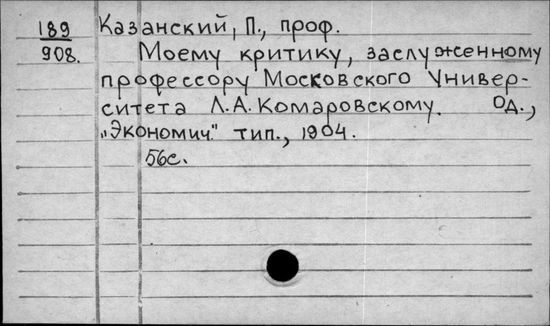 189 Казанский, П., проф.
908. Моему критику, заслуженному
профессору Московского Универ-
ситета Л.А. Комаровскому. Од.,
„Экономич." тип., 1904.
56с.